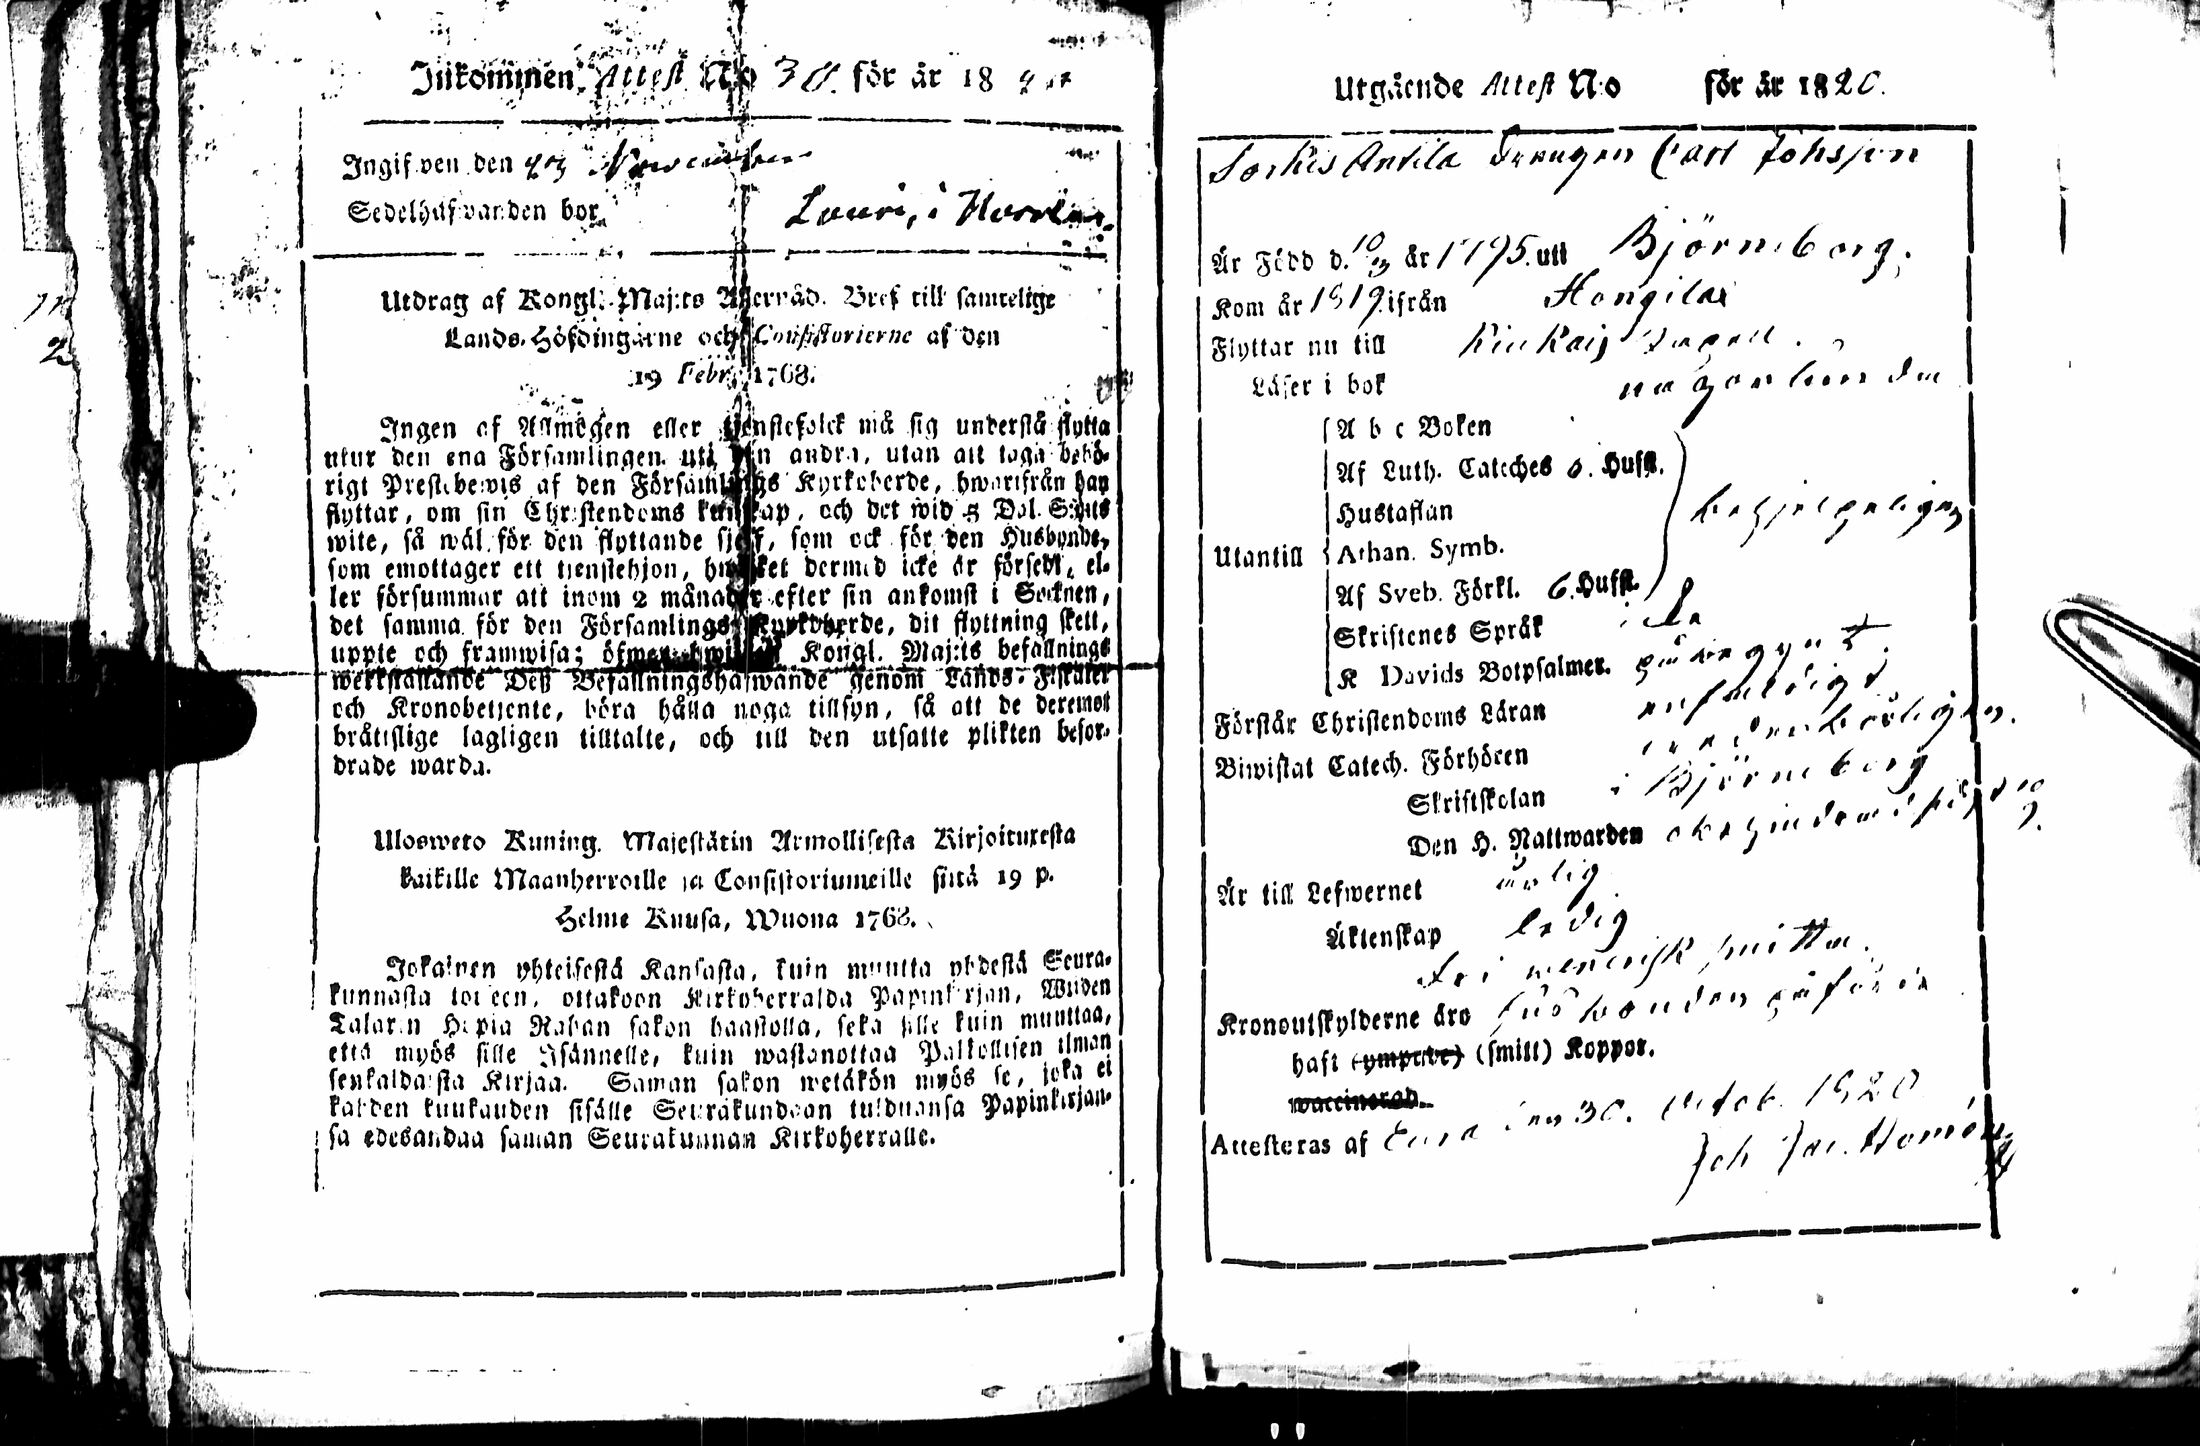 Inkommen Attest No 38. för år 18
Ingifven den November
Sedelhafwanden bor Lauri, i
Utdrag af Kongl. Maj:ts Allernåd. Bref till samtelige
Lands-Höfdingarne och Consistorierne af den
19 Febr. 1768.
Ingen af Allmogen eller tjenstefolck må sig understå flytta
utur den ena Församlingen uti den andra, utan att taga behö-
rigt Prestebewis af den Församlings Kyrkoherde, hwartifrån han
flyttar, om sin Christendoms kunskap, och det wid 5 Dal. S:mts
wite, så wäl för den flyttande sjelf, som ock för den Husbonde,
som emottager ett tjenstehjon, hwilket dermed icke är försedt, el-
ler försummar att inom 2 månader efter sin ankomst i Socknen,
det samma för den Församlings Kyrkoherde, dit flyttning skett,
uppte och framwisa; öfwer hwilket Kongl. Maj:ts befallnings
werkställande Deß Befallningshafwande genom Lands-Fiskaler
och Kronobetjente, böra hålla noga tillsyn, så att de deremot
bråttslige lagligen tilltalte, och till den utsatte plikten befor-
drade warda.
Ulosweto Kuning. Majestätin Armollisesta Kirjoituxesta
kaikille Maanherroille ja Consistoriumeille siitä 19 p.
Helme Kuusa, Wuona 1768.
Jokainen yhteisestä Kansasta, kuin muutta yhdestä Seura-
kunnasta toiseen, ottakoon Kirkoherralda Papinkirjan, Wiiden
Talarin Hopia Rahan sakon haastolla, sekä sille kuin muuttaa,
että myös sille Isännelle, kuin wastanottaa Palkollisen ilman
senkaldaista Kirjaa. Saman sakon wetäkön myös se, joka ei
kahden kuukauden sisälle Seurakundaan tulduansa Papinkirjan-
sa edesandaa saman Seurakunnan Kirkoherralle.
Utgående Attest N:o för år 1820.
Sorkis Antila Drengen Carl Johsson
Är Född d. 10/9 år 1795. utt Björneborg.
Kom år 1819 ifrån Hongilax
Flyttar nu till Kiukais Capell.
Läser i bok någorlunda
A b c Boken
Af Luth. Cateches 6. Hufst.
Hustaflan
Utantill Athan. Symb.
Af Sveb. Förkl. 6. Hufst.
Skriftenes Språk
K Davids Botpsalmer. påbegynt.
Förstår Christendoms Läran enfaldigt
Biwistat Catech. Förhören
Skriftskolan i Björneborg
Den H. Nattwarden
Är till Lefwernet ärlig
Äktenskap ledig
fri wenerisk smitta.
Kronoutskylderne äro husbonden påförda
haft (ympade) (smitt) Koppor.
waccinerad.
Attesteras af Eura den 30. Octob. 1820
Joh Jac. Nomén